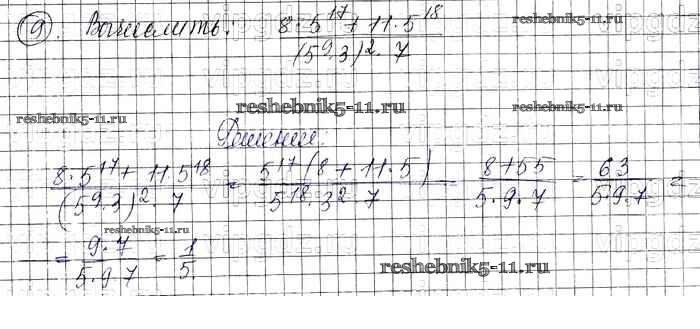 9. Вычислить: 8·5^17 + 11·5^18 / (5^9·3)^2·7
reshebnik5-11.ru
reshebnik5-11.ru
reshebnik5-11.ru
Решение:
8·5^17 + 11·5^18 / (5^9·3)^2·7 = 5^17(8+11·5) / 5^18·3^2·7 = 8+55 / 5·9·7 = 63 / 5·9·7 =
reshebnik5-11.ru
= 9·7 / 5·9·7 = 1/5
reshebnik5-11.ru